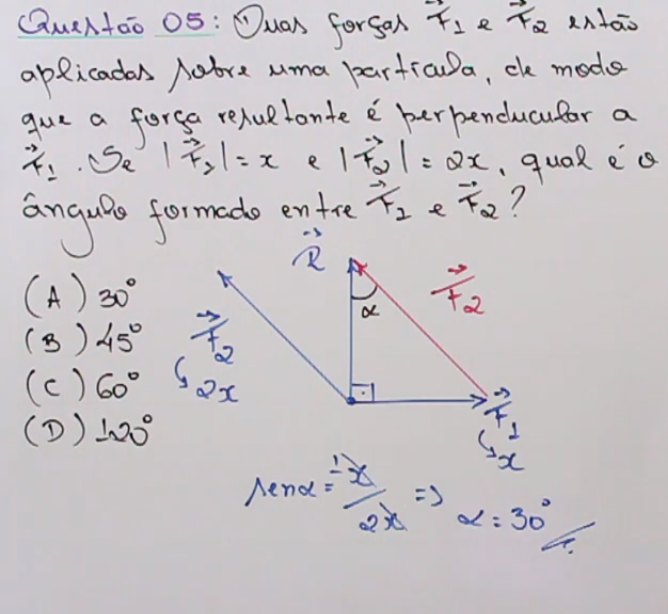 Questão 05: Duas forças F⃗1 e F⃗2 estão
aplicadas sobre uma partícula, de modo
que a força resultante é perpenducular a
F⃗1. Se |F⃗1| = x e |F⃗2| = 2x, qual é o
ângulo formado entre F⃗1 e F⃗2?
(A) 30°
(B) 45°
(C) 60°
(D) 120°
R⃗
F⃗2
α
F⃗2
2x
F⃗1
x
senα = 1x/2x => α = 30°